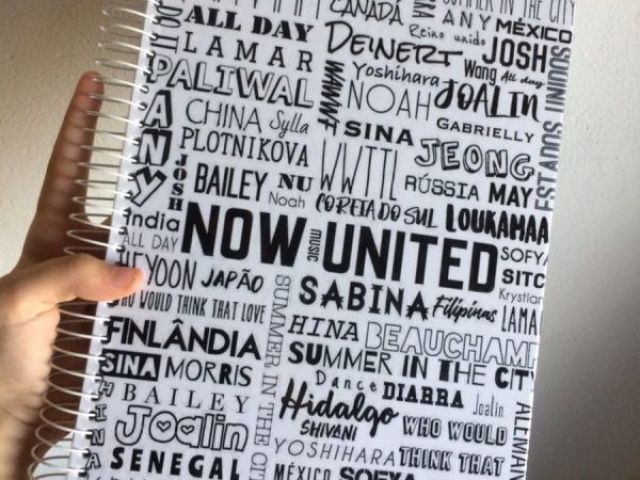 CANADÁ
SUMMER IN THE CITY
ANY MÉXICO
ALL DAY
Reino unido
DEINERT
JOSH
LAMAR
Yoshihara
Wang
All day
PALIWAL
WWWTF
NOAH
JOALIN
ANY
CHINA Sylla
SINA
GABRIELLY
ESTADOS UNIDOS
PLOTNIKOVA
WWTTL
JEONG
JOSH
BAILEY NU
RÚSSIA MAY
Noah
COREIA DO SUL
LOUKAMAA
India
NOW UNITED
MUSIC
ALL DAY
SOFYA
HEYOON JAPÃO
SITC
SABINA
Filipinas
WHO WOULD THINK THAT LOVE
LAMA
SUMMER IN THE CIT
FINLÂNDIA
HINA BEAUCHAMP
SUMMER IN THE CITY
SINA MORRIS
Dance DIARRA Joalin
HINA
BAILEY
Hidalgo
WHO WOULD
ALEMAN
Joalin
SHIVANI
YOSHIHARA THINK THAT
SENEGAL
MÉXICO SOFYA